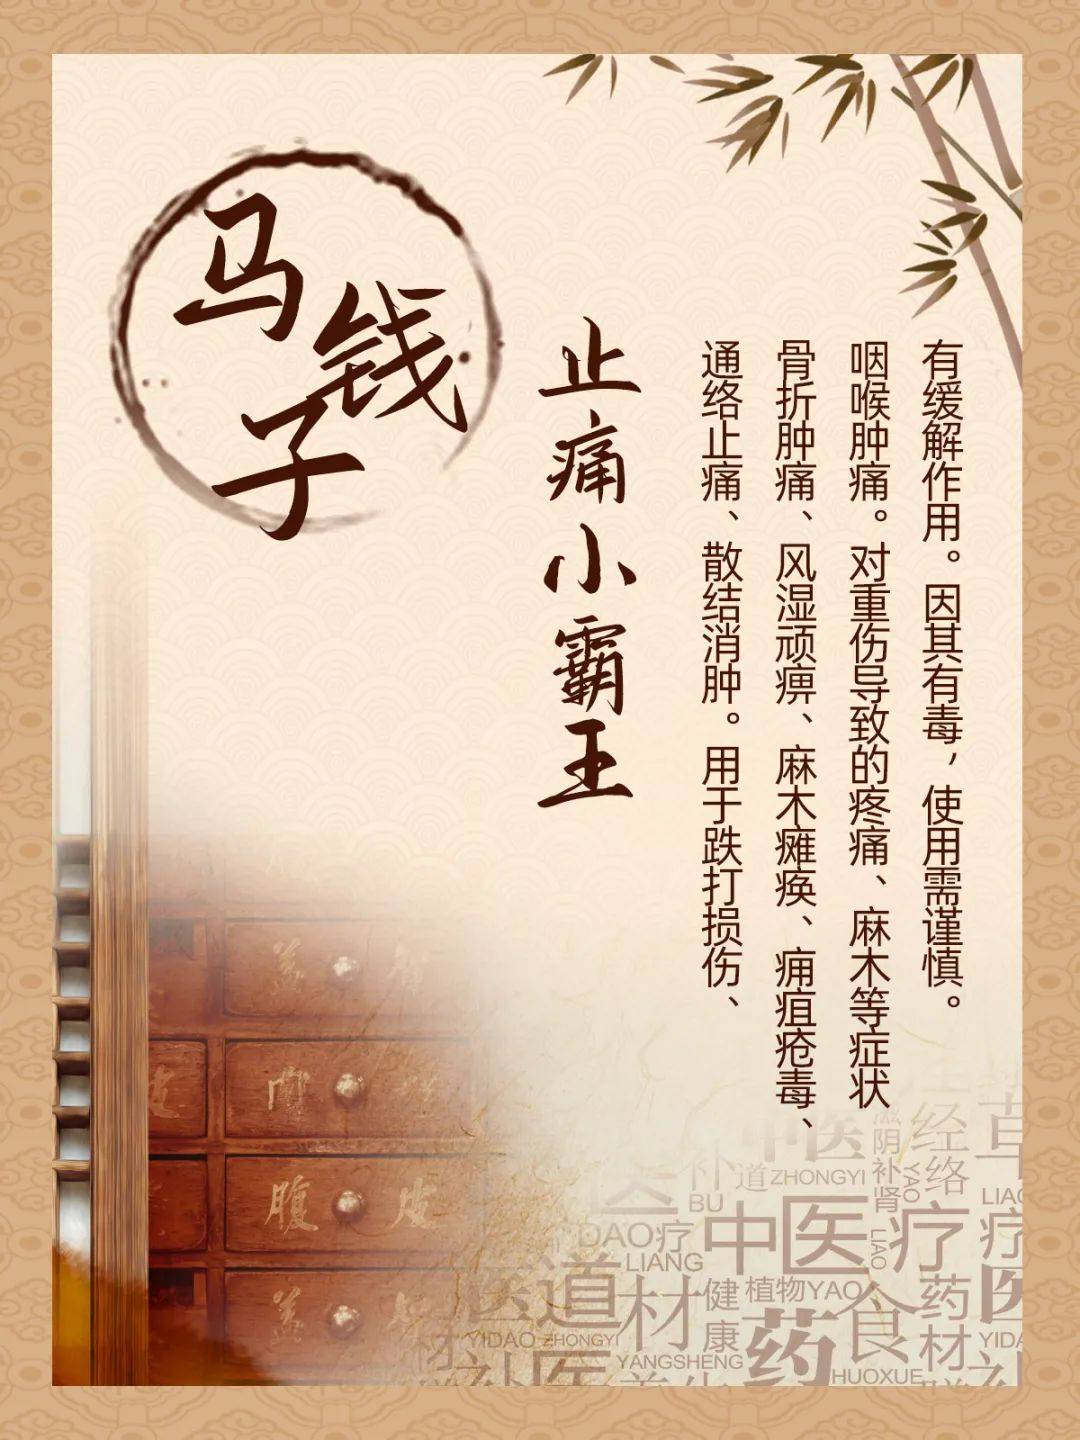 马钱子
止痛小霸王
通络止痛、散结消肿。用于跌打损伤、
骨折肿痛、风湿顽痹、麻木瘫痪、痈疽疮毒、
咽喉肿痛。对重伤导致的疼痛、麻木等症状
有缓解作用。因其有毒，使用需谨慎。
腹 皮
中医
滋阴补肾
经络
YAO
草
补
BU
道
ZHONGYI
医
DAO疗
LIANG
中医疗
LIAO
LIAO
疗
医道
材
健康
植物YAO
药
食
药材
医
YIDAO
ZHONGYI
YANGSHENG
HUOXUE
YIDA
材
补
医
养生